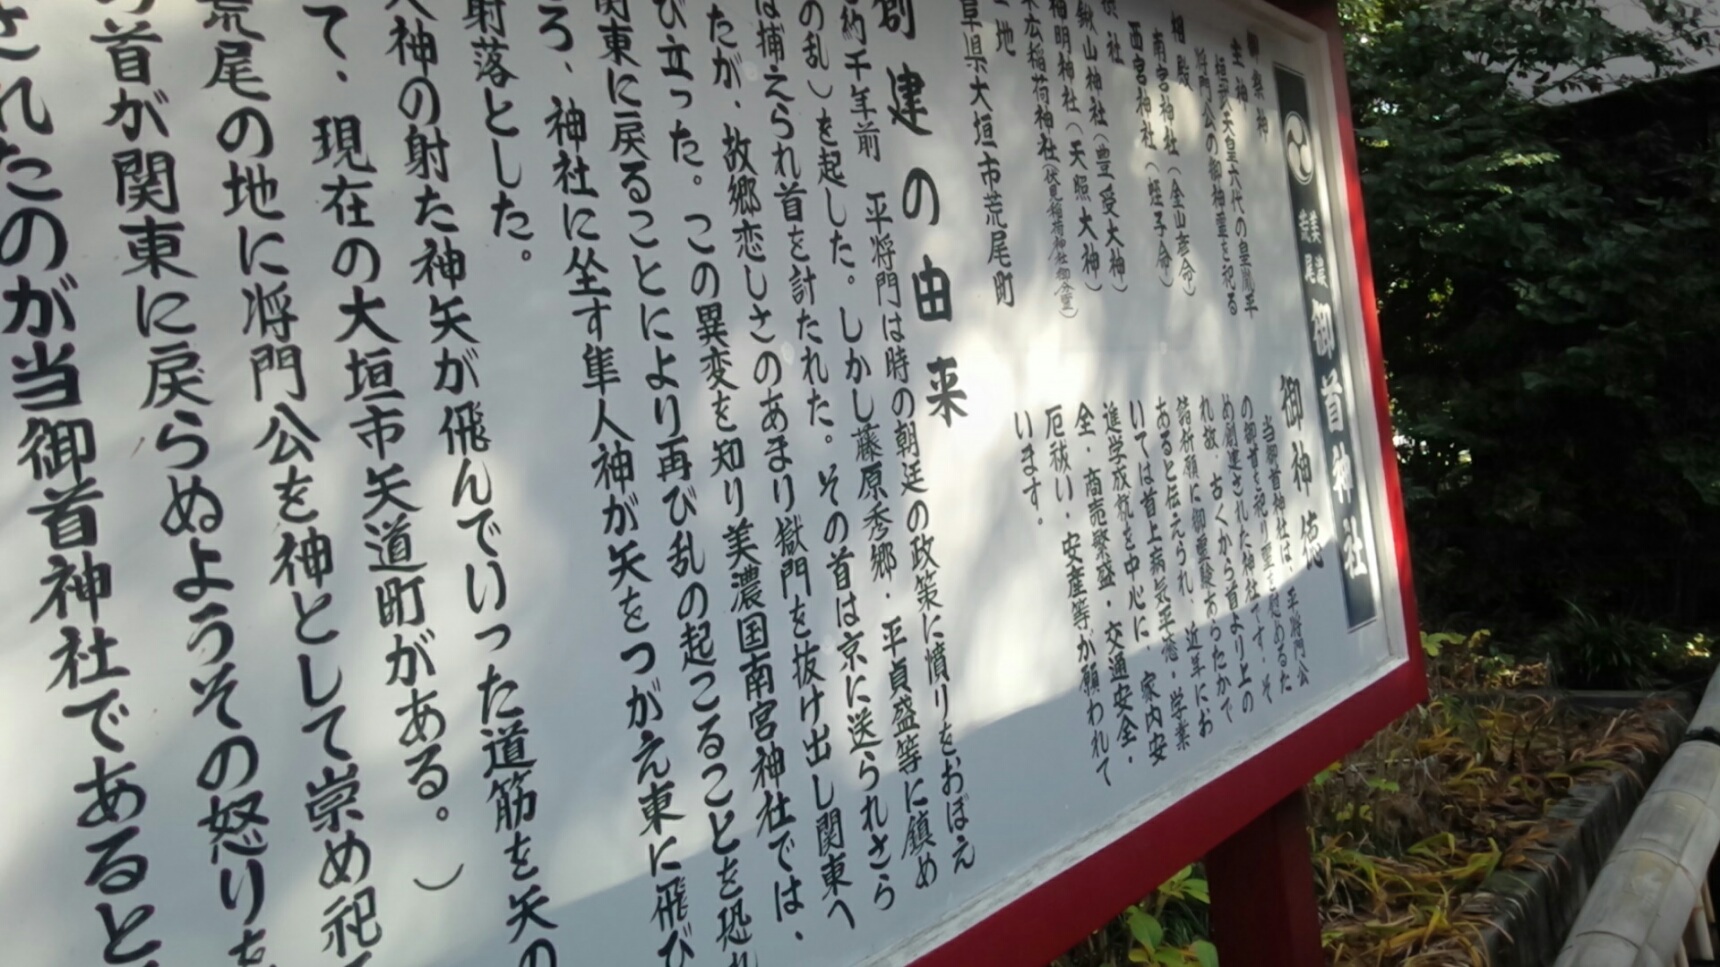 美濃
荒尾
御首神社
御祭神
主神
桓武天皇六代の皇胤平
将門公の御神霊を祀る
相殿
南宮神社(金山彦命)
西宮神社(蛭子命)
末社
鍬山神社(豊受大神)
神明神社(天照大神)
末広稲荷神社(伏見稲荷神社御分霊)
地
阜県大垣市荒尾町
御神徳
当御首神社は、平将門公
の御首を祀り霊を慰めるた
め創建された神社です。そ
れ故、古くから首より上の
諸祈願に御霊験あらたかで
あると伝えられ、近年にお
いては首上病気平癒・学業
進学成就を中心に、家内安
全・商売繁盛・交通安全・
厄祓い・安産等が願われて
います。
創建の由来
約千年前 平将門は時の朝廷の政策に憤りをおぼえ
の乱)を起した。しかし藤原秀郷・平貞盛等に鎮め
は捕えられ首を討たれた。その首は京に送られさら
たが、故郷恋しさのあまり獄門を抜け出し関東へ
び立った。この異変を知り美濃国南宮神社では、
関東に戻ることにより再び乱の起こることを恐れ
ろ、神社に坐す隼人神が矢をつがえ東に飛び
射落とした。
人神の射た神矢が飛んでいった道筋を矢の
て、現在の大垣市矢道町がある。)
荒尾の地に将門公を神として崇め祀
の首が関東に戻らぬようその怒りを
されたのが当御首神社であると